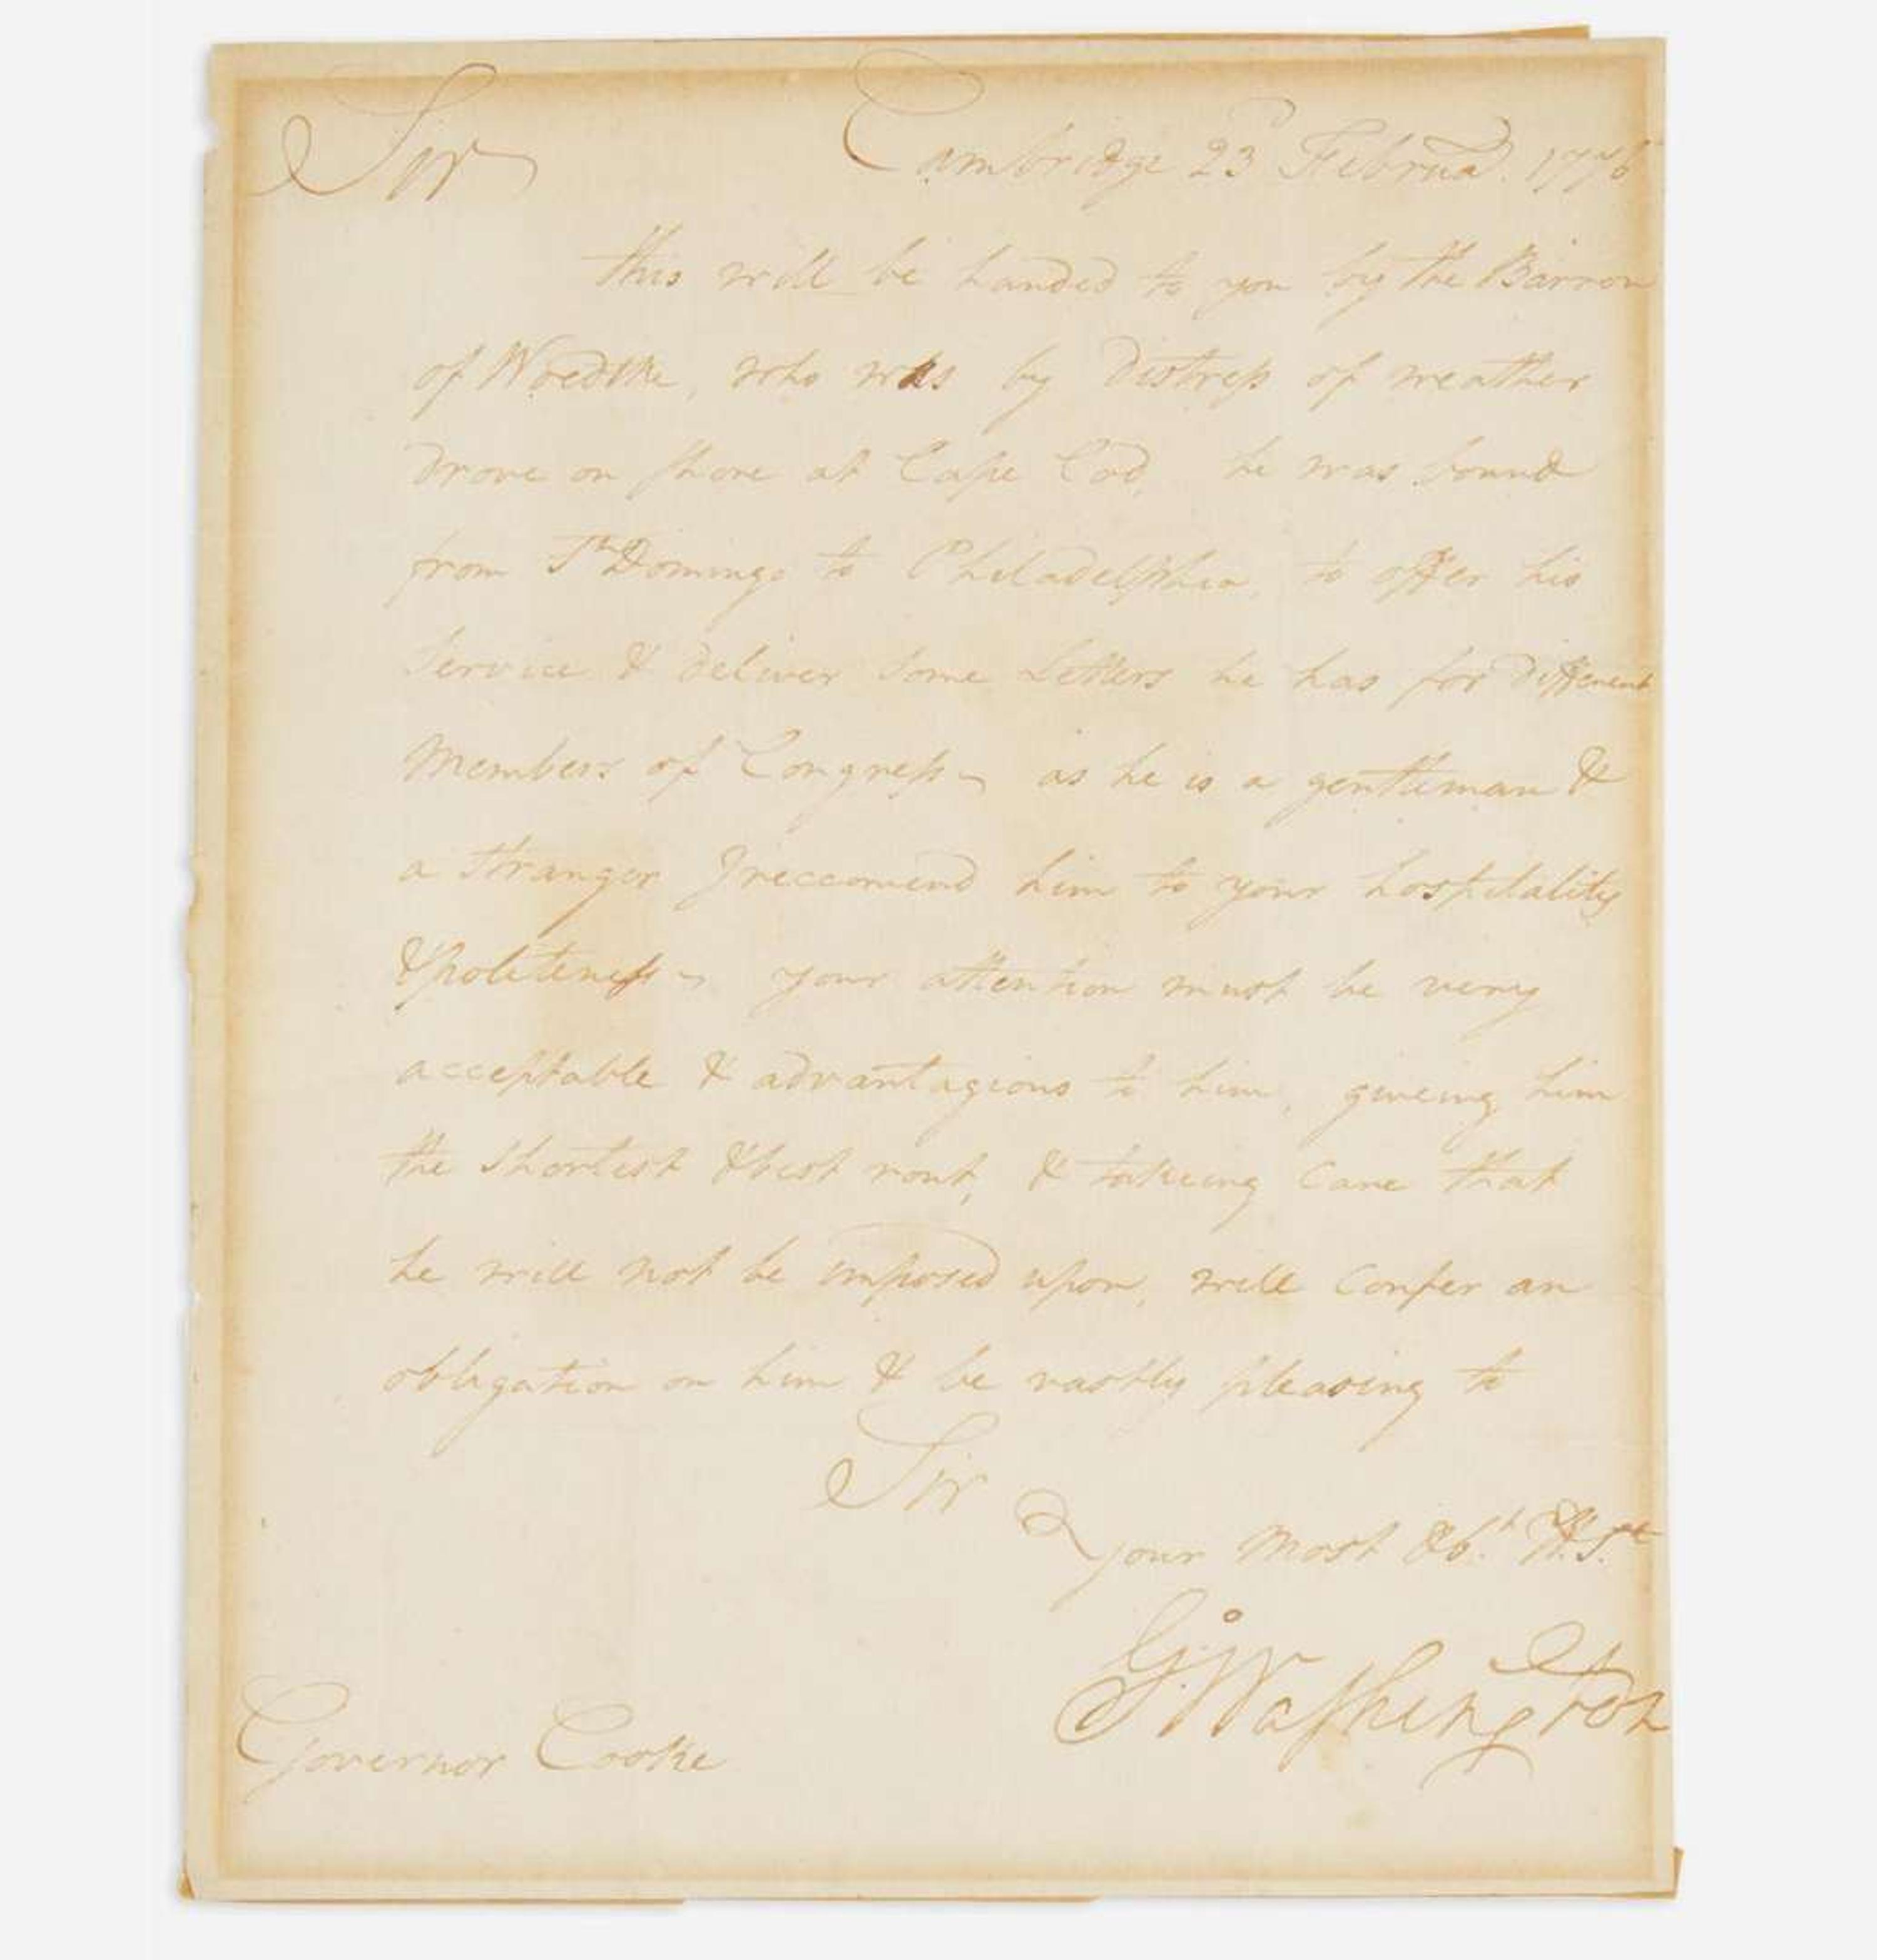 Sir Cambridge 23d Februa. 1776
this will be handed to you by the Barron
of Woedtke, who was by Distress of weather
Drove on shore at Cape Cod, he was bound
from St Domingo to Philadelphia, to offer his
Service & deliver Some Letters he has for Different
Members of Congress – as he is a gentleman &
a Stranger I reccomend him to your hospitality
& politeness – your attention must be very
acceptable & advantagious to him, giveing him
the Shortest & best rout, & takeing Care that
he will not be imposed upon, will Confer an
obligation on him & be vastly pleasing to
Sir
your Most Obt. H. St
Go: Washington
Governor Cooke